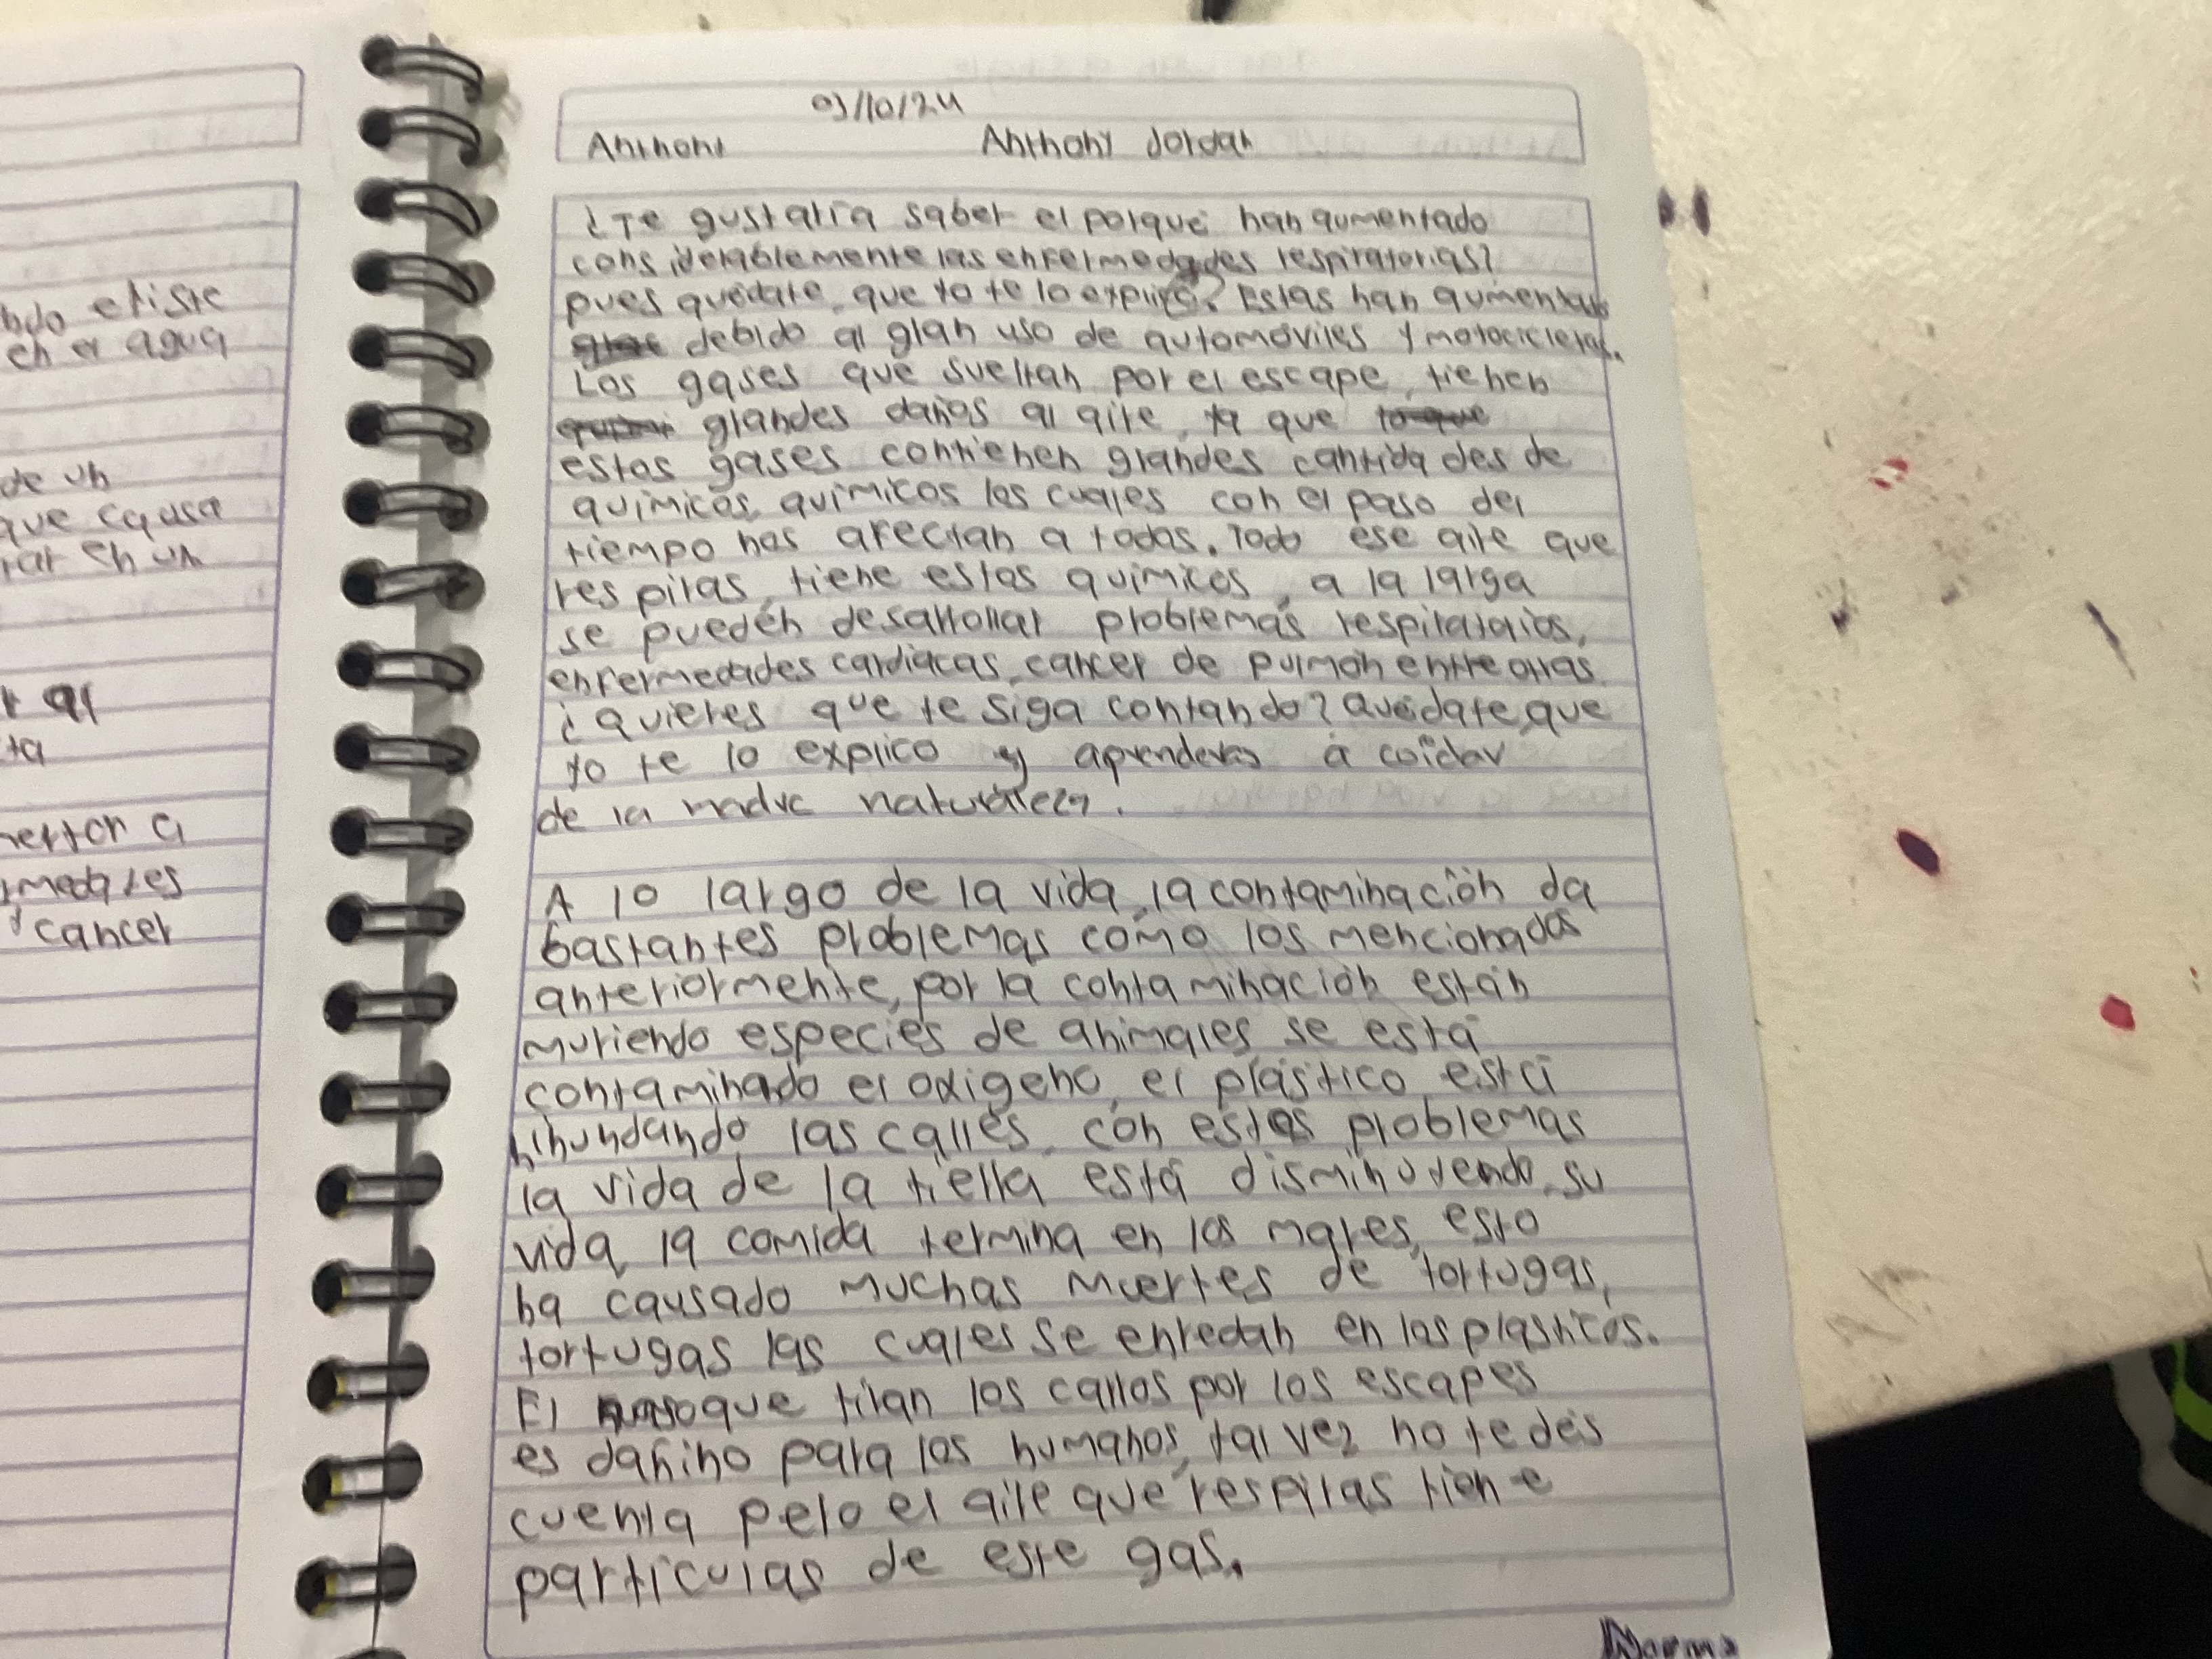 ndo existe
en el agua
de un
que causa
rar en un
r al
ta
medades
cancer
03/10/24
Anthony Anthony Jordan
¿Te gustaría saber el porqué han aumentado
considerablemente las enfermedades respiratorias?
pues quédate, que yo te lo explico. Estas han aumentado
debido al gran uso de automóviles y motocicletas.
Los gases que sueltan por el escape, tienen
grandes daños al aire, ya que
estos gases contienen grandes cantidades de
químicos, químicos los cuales con el paso del
tiempo nos afectan a todos. Todo ese aire que
respiras, tiene estos químicos, a la larga
se pueden desarrollar problemas respiratorios,
enfermedades cardiacas, cancer de pulmón entre otras.
¿Quieres que te siga contando? Quédate, que
yo te lo explico y aprenderas a coidar
de la madre naturaleza.
A lo largo de la vida, la contaminación da
bastantes problemas como los mencionados
anteriormente, por la contaminación están
muriendo especies de animales se está
contaminado el oxigeno, el plástico está
inundando las calles, con estos problemas
la vida de la tierra está disminuyendo, su
vida, la comida termina en los mares, esto
ha causado muchas muertes de tortugas,
tortugas las cuales se enredan en los plásticos.
El humo que tiran los carros por los escapes
es dañino para los humanos, tal vez no te des
cuenta pero el aire que respiras tiene
particulas de este gas.
Norma